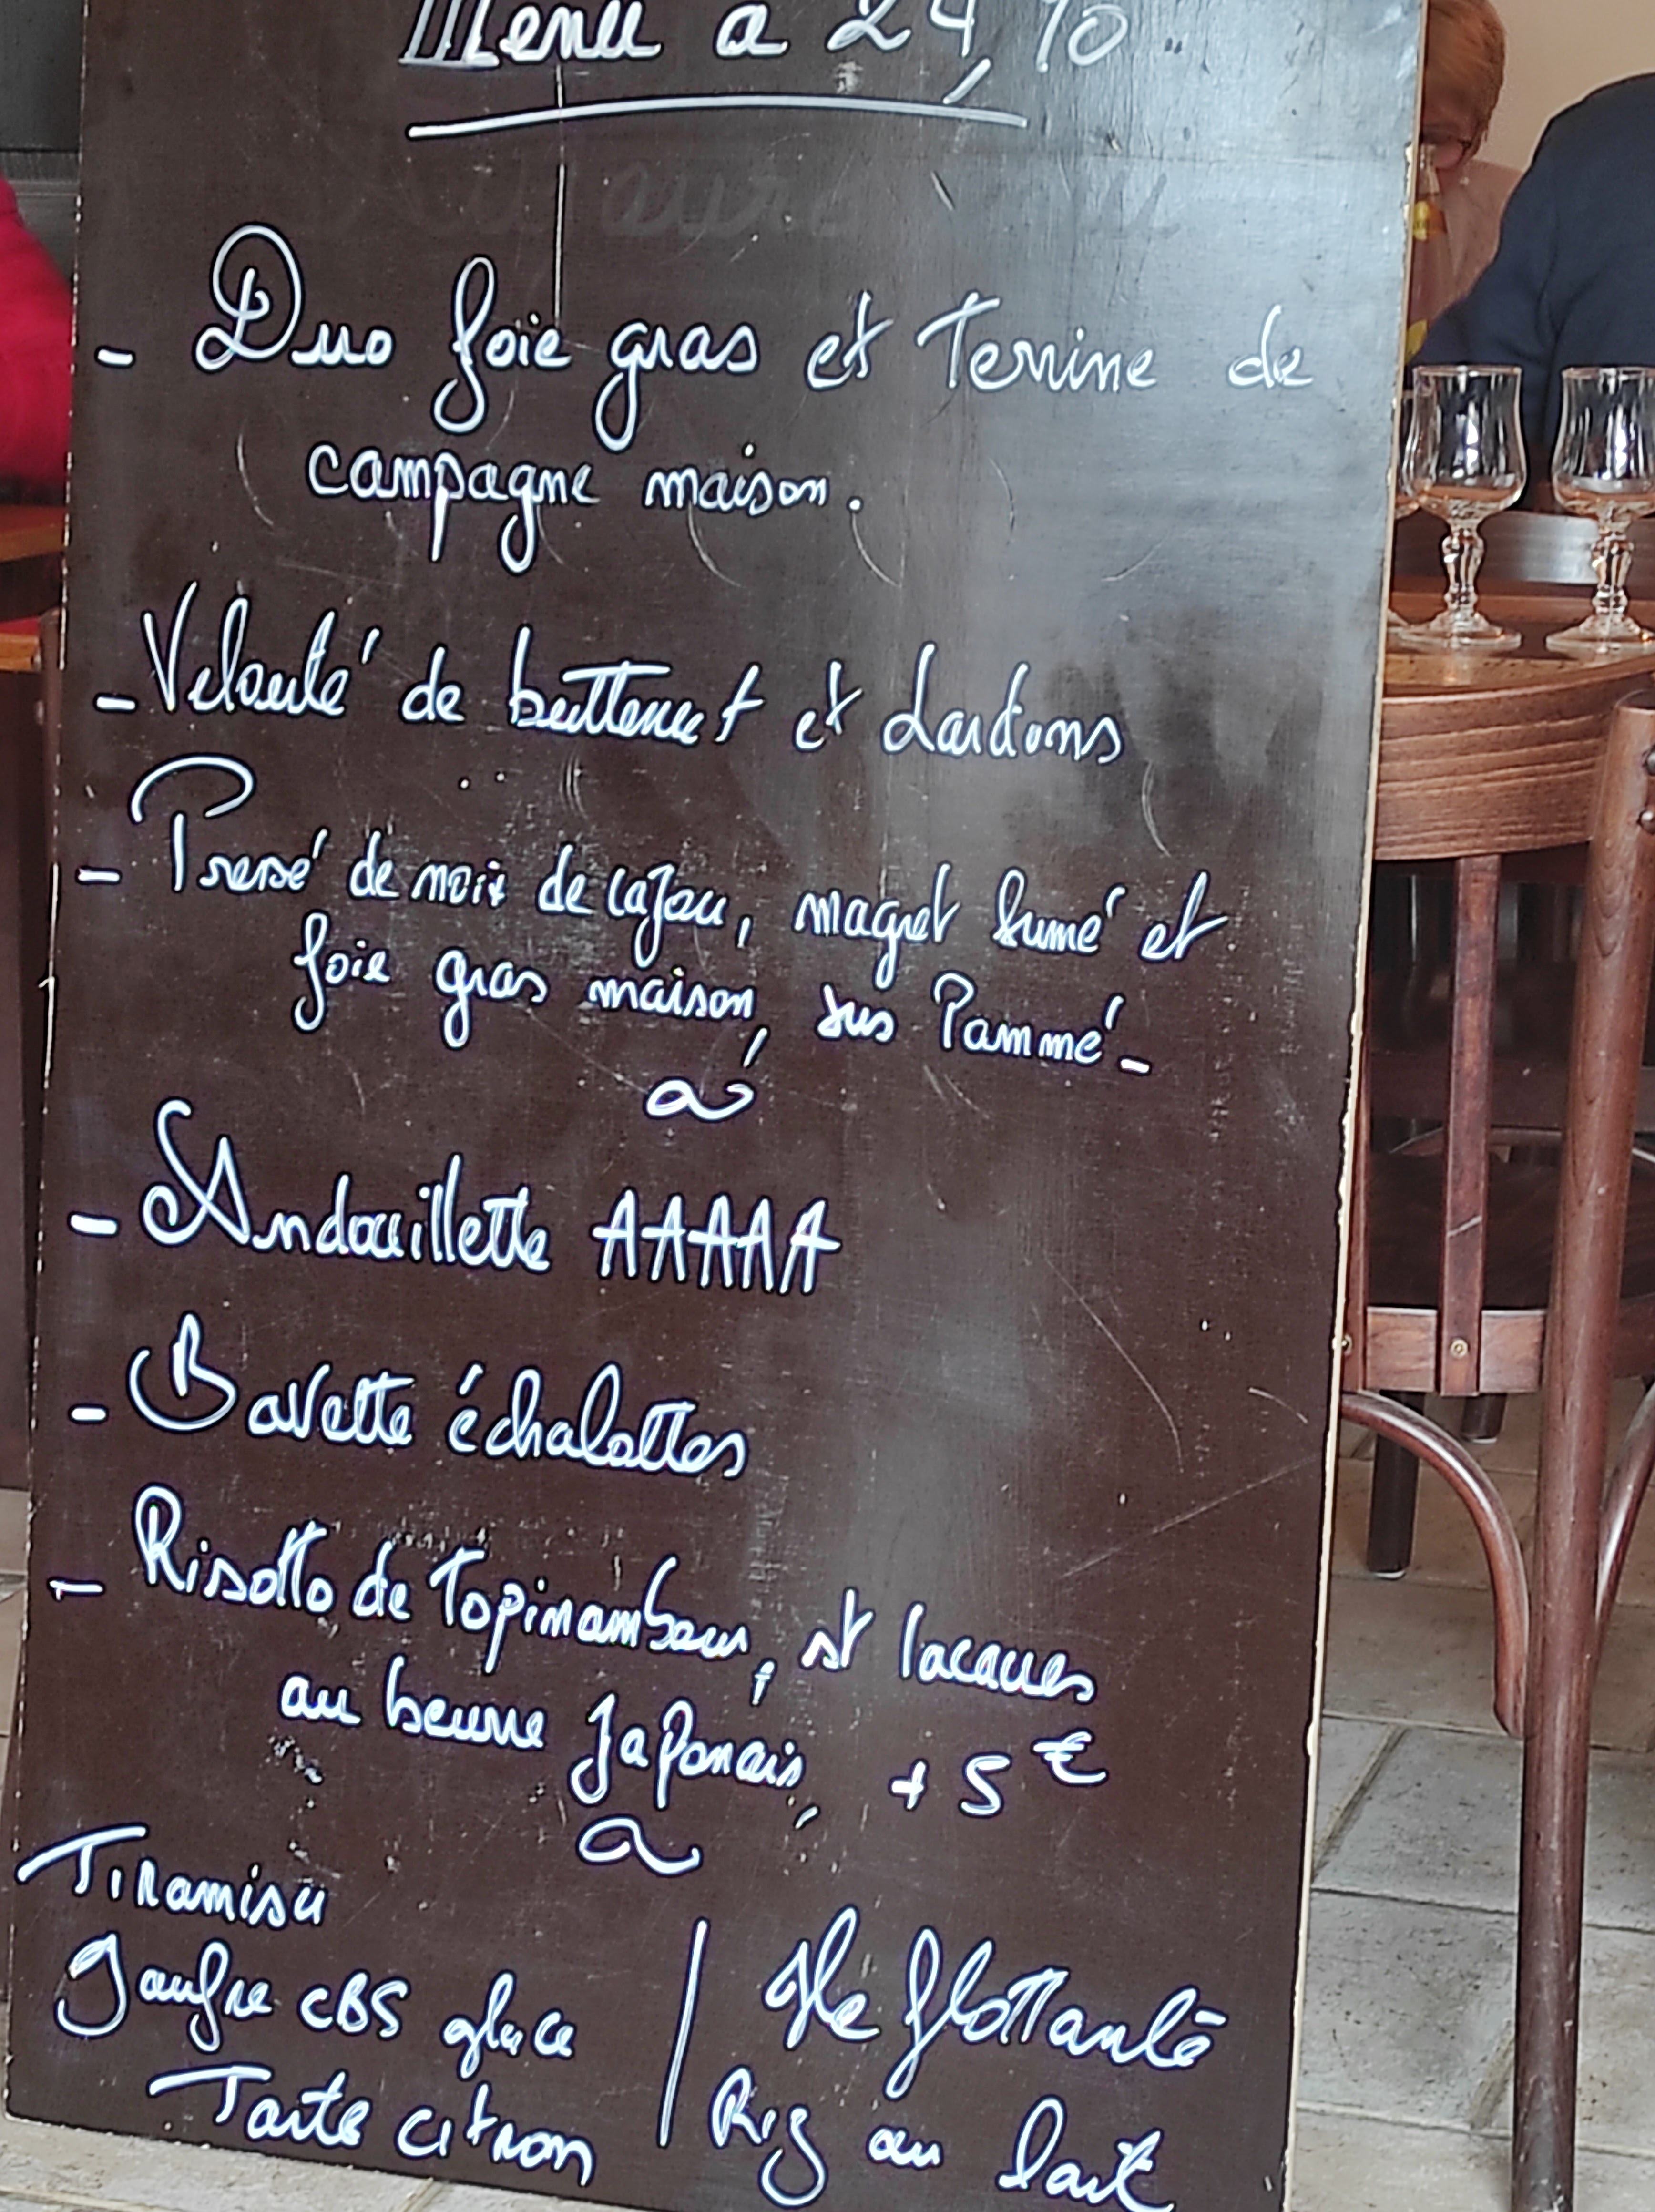 Menu a 24,90
- Duo foie gras et Terrine de
campagne maison.
- Velouté de butternut et Lardons
- Pressé de noix de cajou, magret fumé et
foie gras maison, jus Pommé -
- Andouillette AAAAA
- Bavette échalottes
- Risotto de Topinambour, st Jacques
au beurre Japonais, + 5€
Tiramisu
Gaufre CBS glace
Tarte citron
Ile flottante
Riz au lait